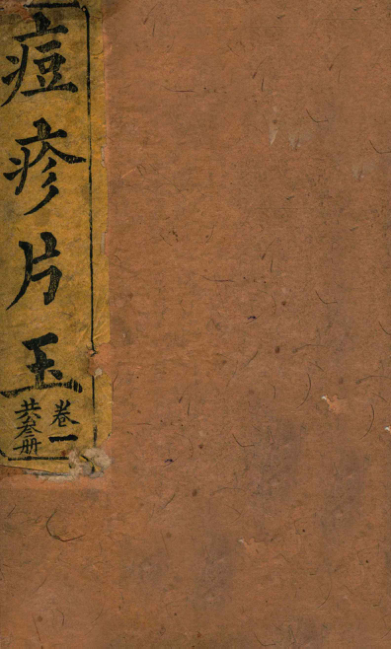 痘疹片玉
卷一
共叁册